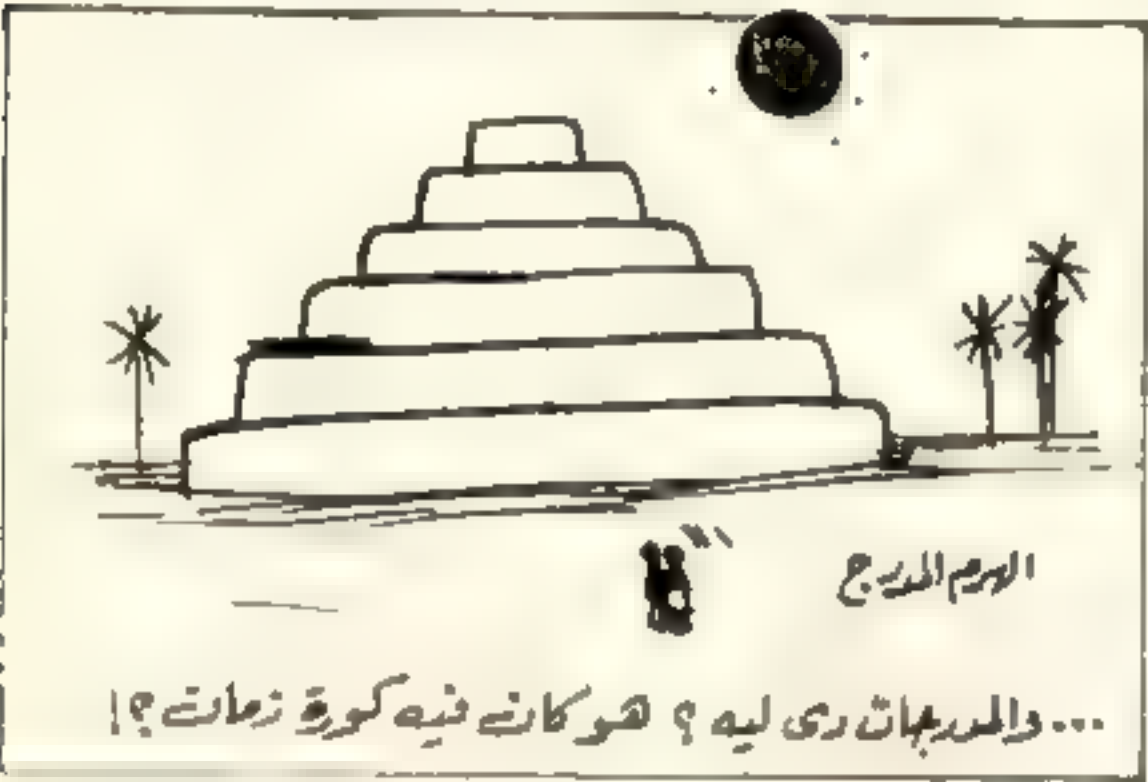 الهرم المدرج
...والمدرجات دى ليه ؟ هو كان فيه كورة زمان ؟!